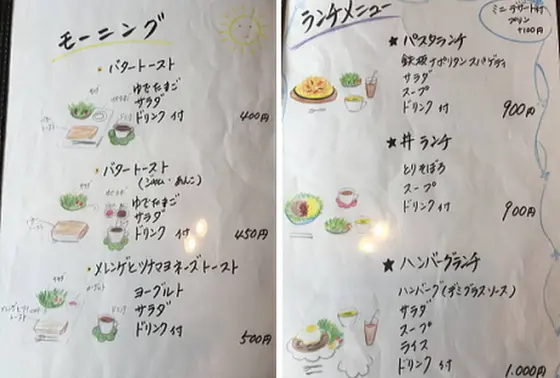 モーニング
バタートースト
ゆでたまご
サラダ
ドリンク付
400円
バタートースト
(ジャム・あんこ)
ゆでたまご
サラダ
ドリンク付
450円
メレンゲとツナマヨネーズトースト
ヨーグルト
サラダ
ドリンク付
500円
ランチメニュー
ミニデザート付
プリン
+100円
★パスタランチ
鉄板ナポリタンスパゲティ
サラダ
スープ
ドリンク付
900円
★丼ランチ
とりそぼろ
スープ
ドリンク付
900円
★ハンバーグランチ
ハンバーグ(デミグラスソース)
サラダ
スープ
ライス
ドリンク付
1.000円